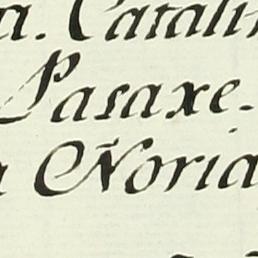 a. Catalin
Pasaxe.
a Noria